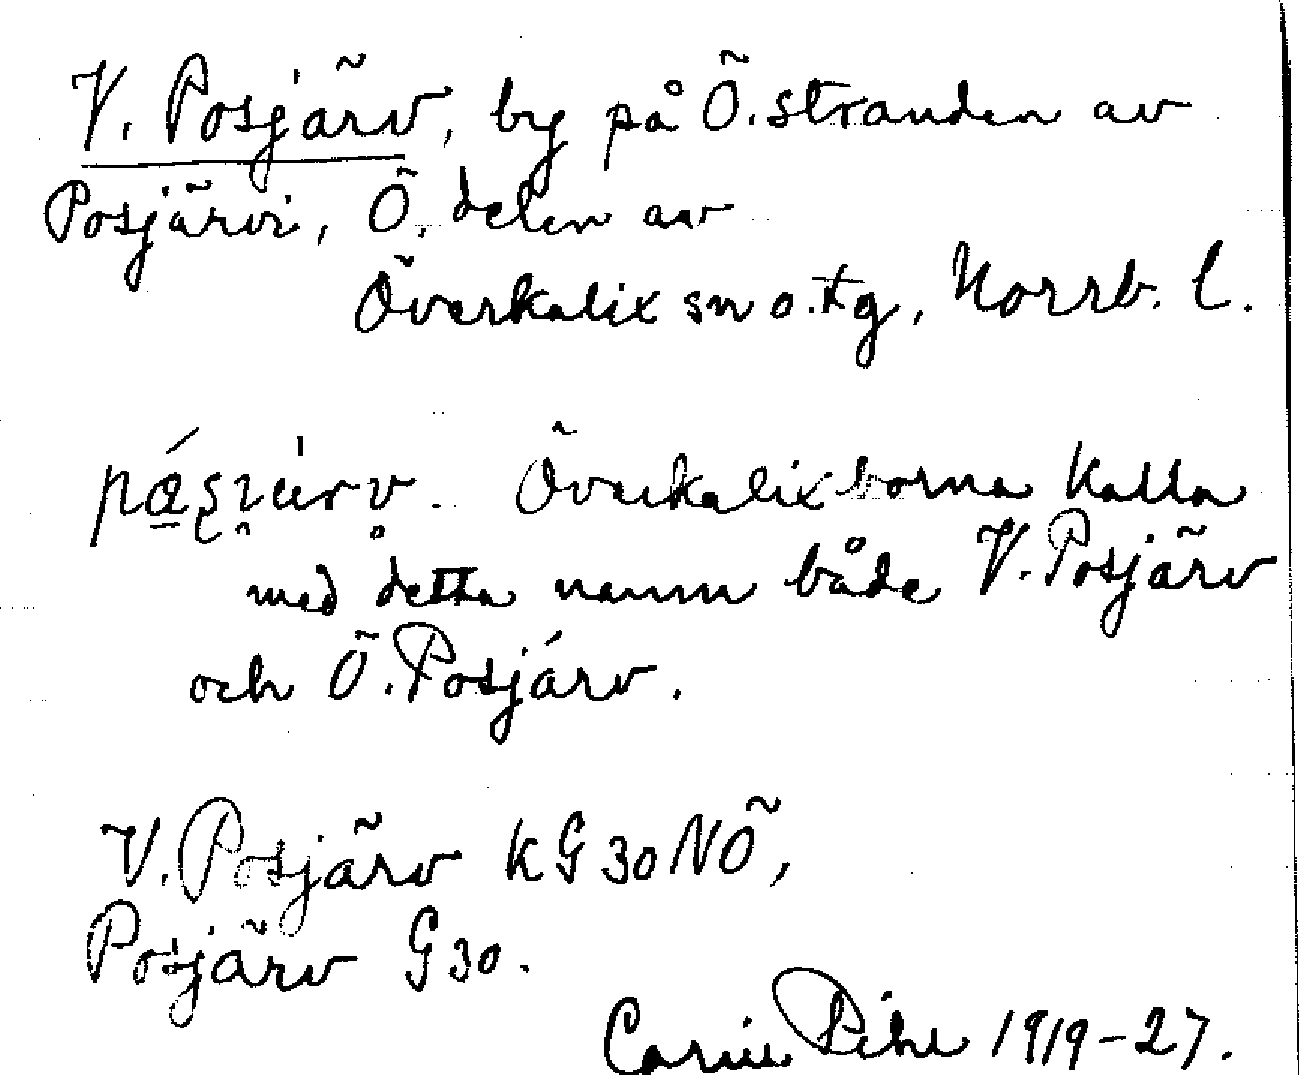 V. Posjärv, by på Ö. stranden av
Posjärvi, Ö. delen av
Överkalix sn o. tg, Norrb. l.
Överkalixborna kalla
med detta namn både V. Posjärv
och Ö. Posjärv.
V. Posjärv kG 30 NÖ,
Posjärv G 30.
Carin Pihl 1919-27.